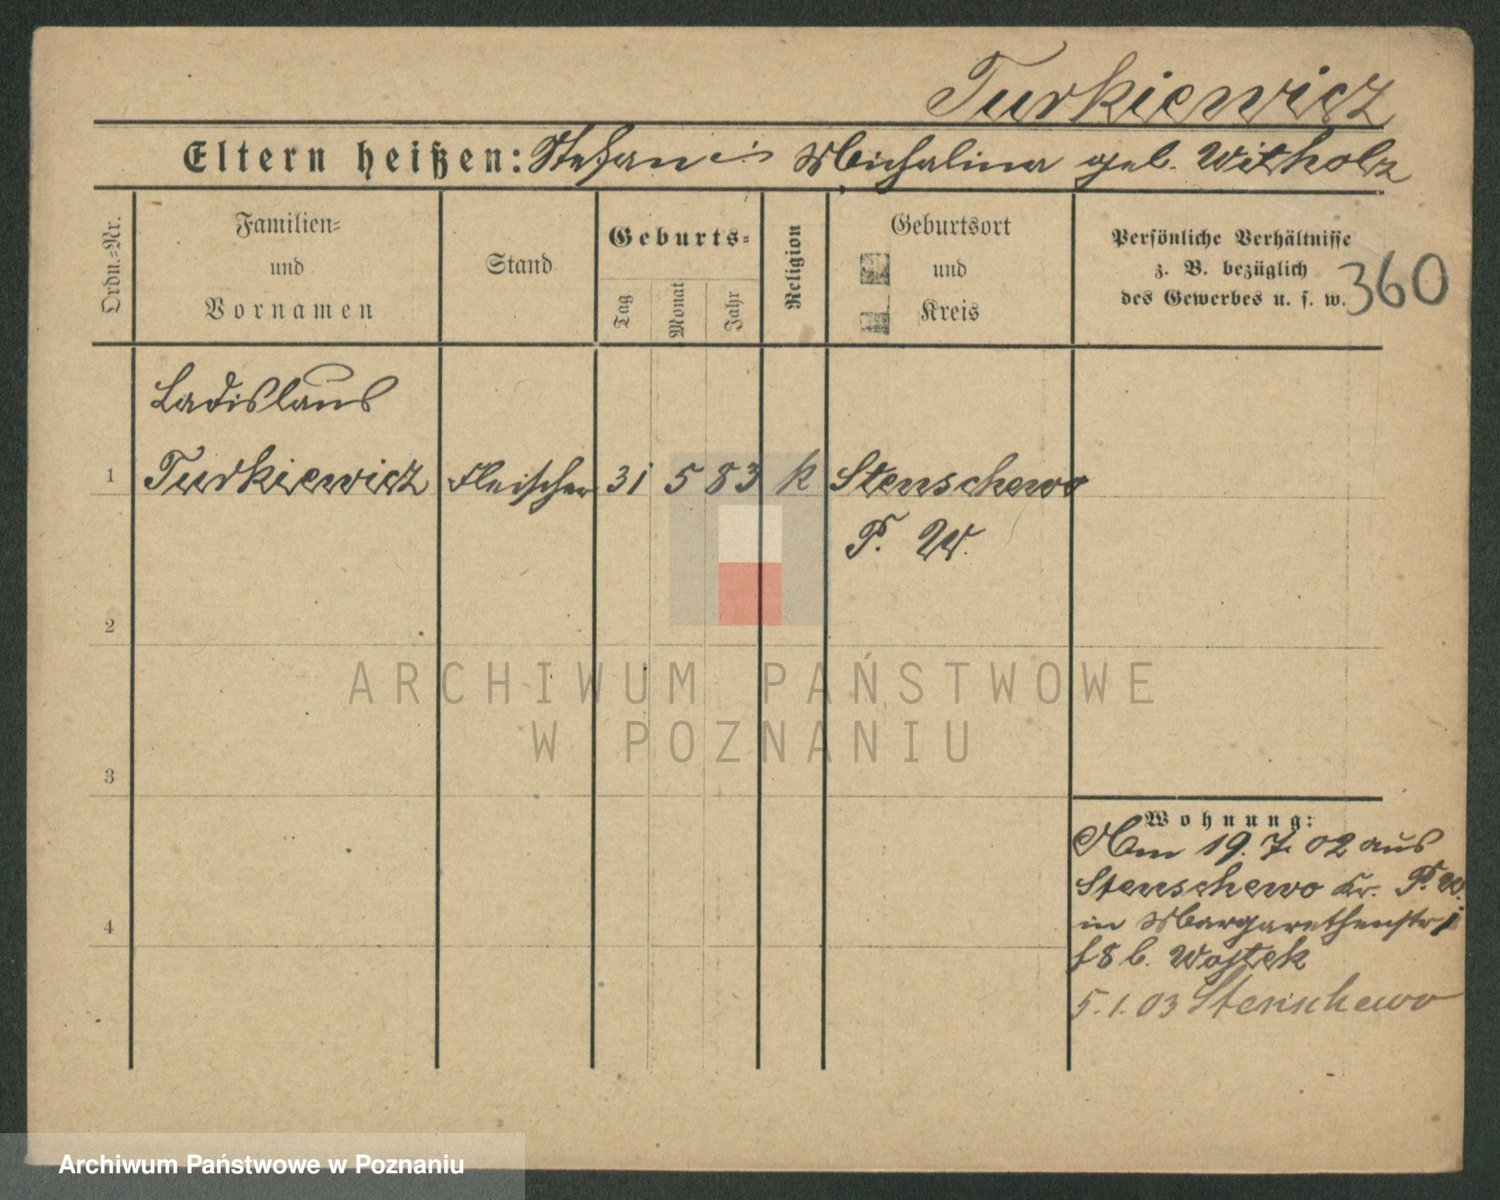 Turkiewicz
Eltern heißen: Stefan u Michalina geb. Witholz
Ordn.-Nr.
Familien-
und
Vornamen
Stand
Geburts-
Tag
Monat
Jahr
Religion
Geburtsort
und
Kreis
Persönliche Verhältnisse
z. B. bezüglich
des Gewerbes u. s. w.
360
Ladislaus
1 Turkiewicz Fleischer 31 5 83 k Stenschewo
P. W.
2
3
4
ARCHIWUM PAŃSTWOWE
W POZNANIU
Wohnung:
Am 19. 7. 02 aus
Stenschewo Kr. P. W.
in Margarethenstr
b. Wojtek
5. 1. 03 Stenschewo
Archiwum Państwowe w Poznaniu